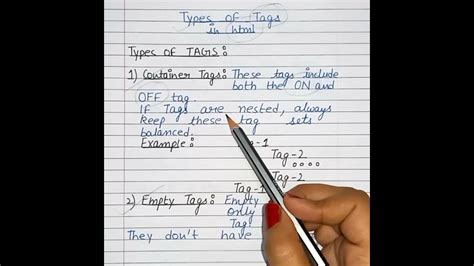 Types of Tags
in html
Types OF TAGS:
1) Container Tags: These tags include
both the ON and
OFF tag
IF Tags are nested, always
keep these tag sets
balanced.
Example: -1
Tag-2
Tag-2
Tag-1
2) Empty Tags: Empty
Only
Tag
They don't have